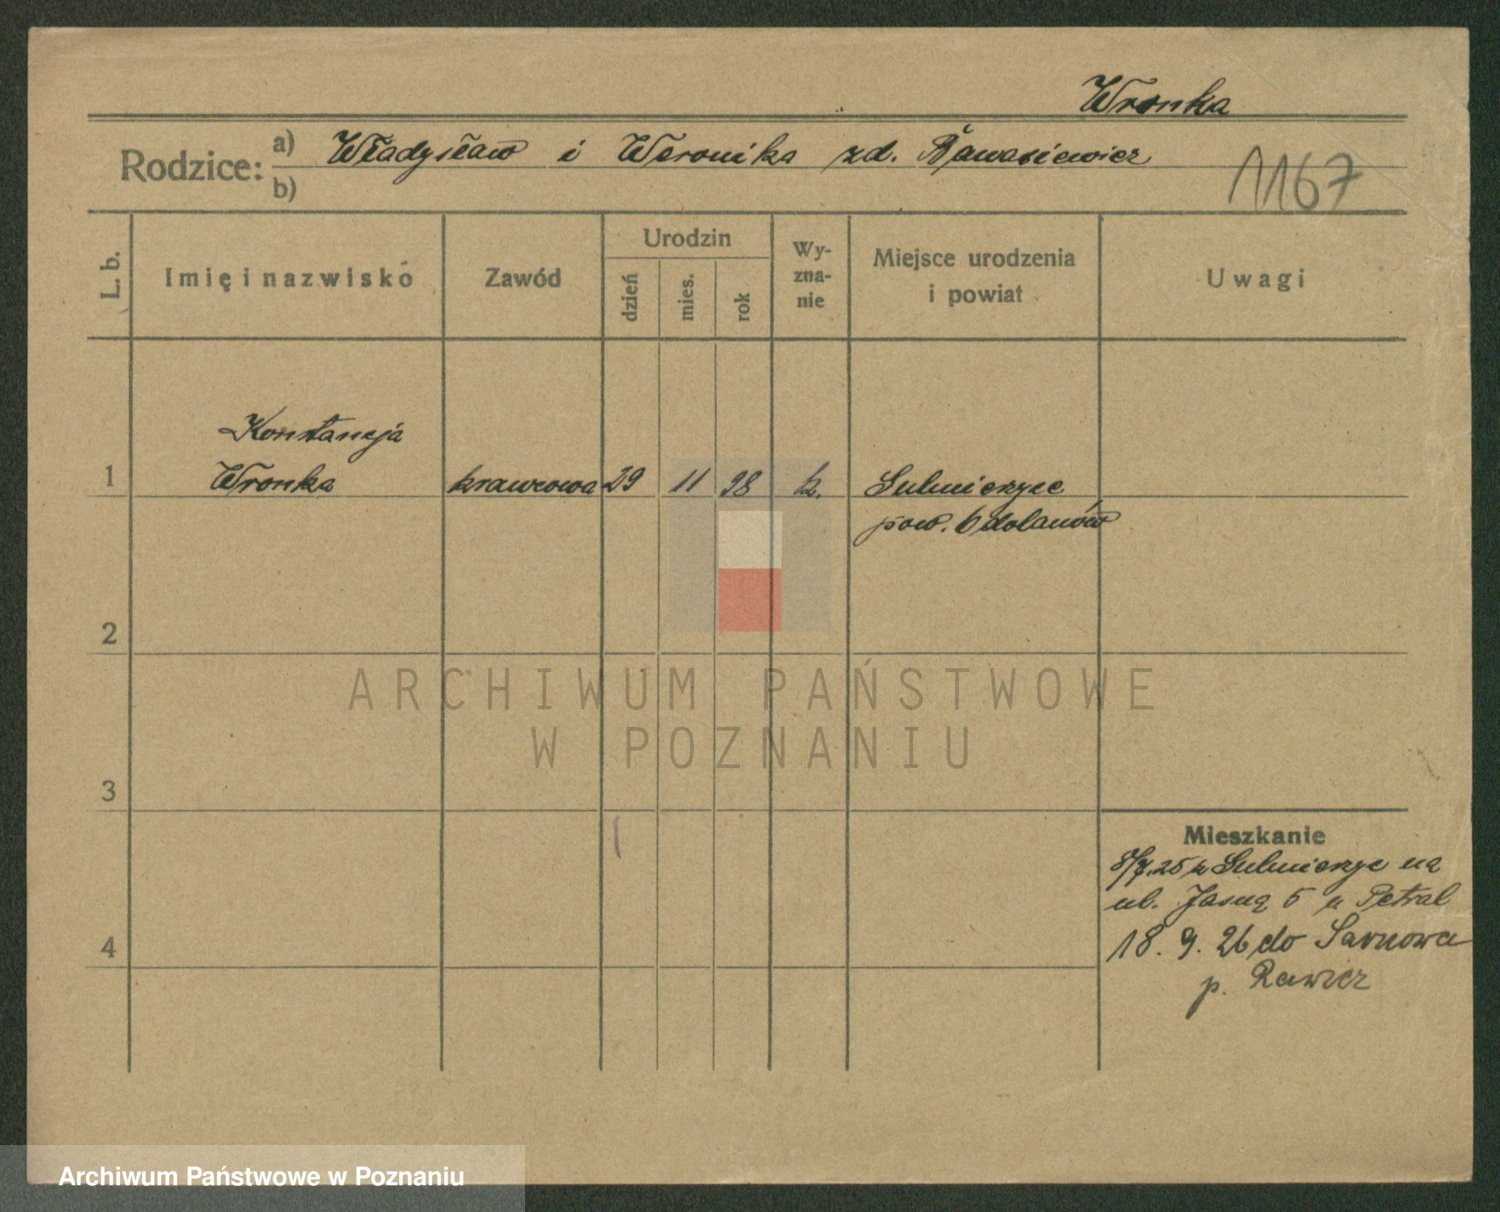 Wronka
Rodzice: a) Władysław i Weronika zd.
b)
1167
L. b.
Imię i nazwisko
Zawód
Urodzin
dzień
mies.
rok
Wy-
zna-
nie
Miejsce urodzenia
i powiat
Uwagi
Konstancja
1 Wronka krawcowa 29 11 98 k. Sulmierzyce
pow. Odolanów
2
3
4
Mieszkanie
8/7.25 z Sulmierzyc na
ul. Jasną 5 u Petral
18. 9. 26 do Sarnowa
p. Rawicz
ARCHIWUM PAŃSTWOWE
W POZNANIU
Archiwum Państwowe w Poznaniu